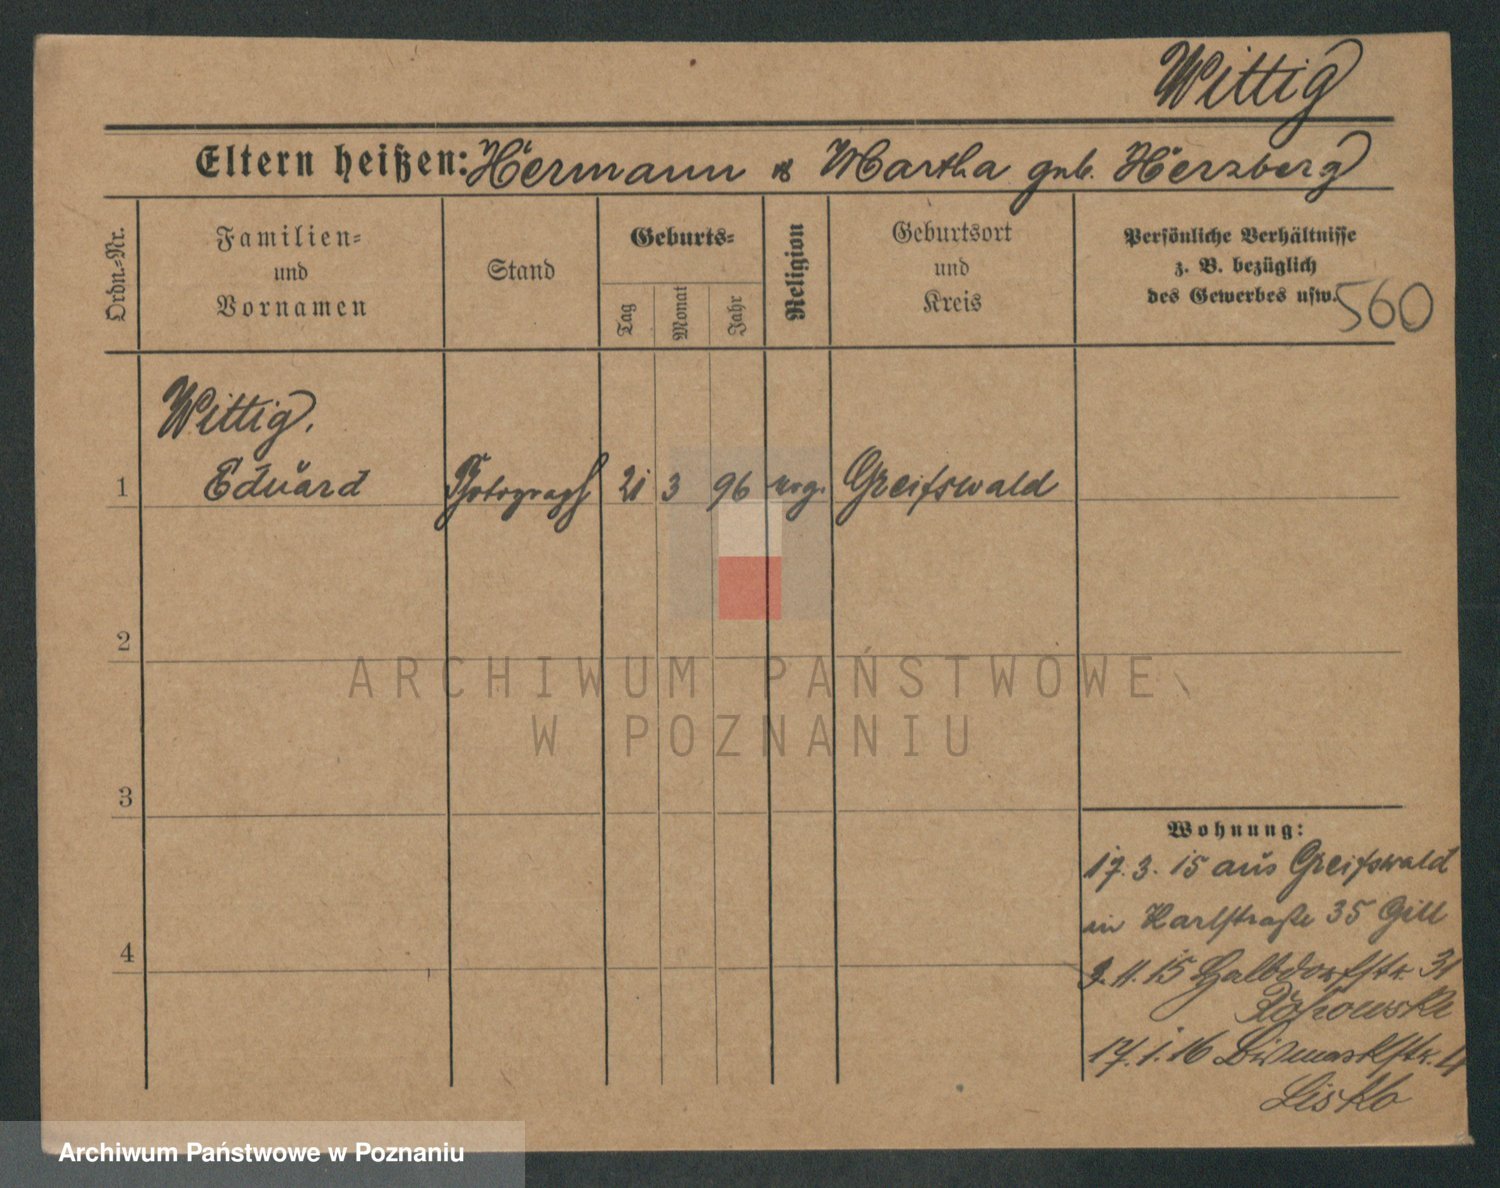 Wittig
Eltern heißen: Hermann & Martha geb. Herzberg
Ordn.-Nr.
Familien-
und
Vornamen
Stand
Geburts-
Tag
Monat
Jahr
Religion
Geburtsort
und
Kreis
Persönliche Verhältnisse
z. B. bezüglich
des Gewerbes usw.
560
Wittig.
1 Eduard Photograph 21 3 96 Greifswald
2
3
4
ARCHIWUM PAŃSTWOWE
W POZNANIU
Wohnung:
17. 3. 15 aus Greifswald
in Karlstraße 35 Gill
9. 11. 15 Halbdorfstr. 31
17. 1. 16 Bismarkstr. 4
Archiwum Państwowe w Poznaniu